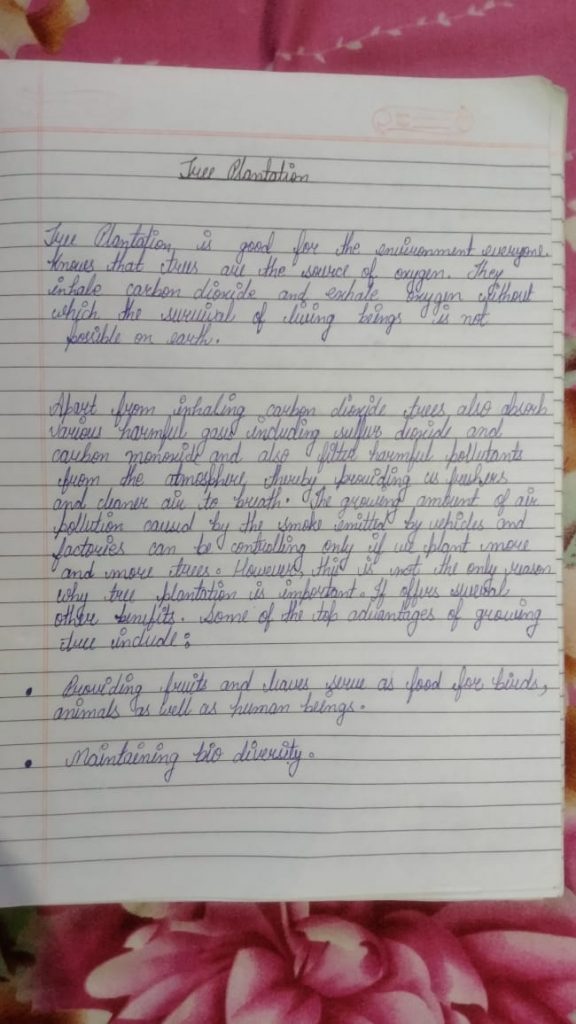 Tree Plantation
Tree Plantation is good for the environment everyone
knows that trees are the source of oxygen. They
inhale carbon dioxide and exhale oxygen without
which the survival of living beings is not
possible on earth.
Apart from inhaling carbon dioxide trees also absorb
various harmful gases including sulfur dioxide and
carbon monoxide and also filter harmful pollutants
from the atmosphere, thereby providing us freshers
and cleaner air to breath. The growing amount of air
pollution caused by the smoke emitted by vehicles and
factories can be controlling only if we plant more
and more trees. However, this is not the only reason
why tree plantation is important. If offers several
other benifits. Some of the top advantages of growing
tree include:
• Providing fruits and leaves serve as food for birds,
animals as well as human beings.
• Maintaining bio diversity.